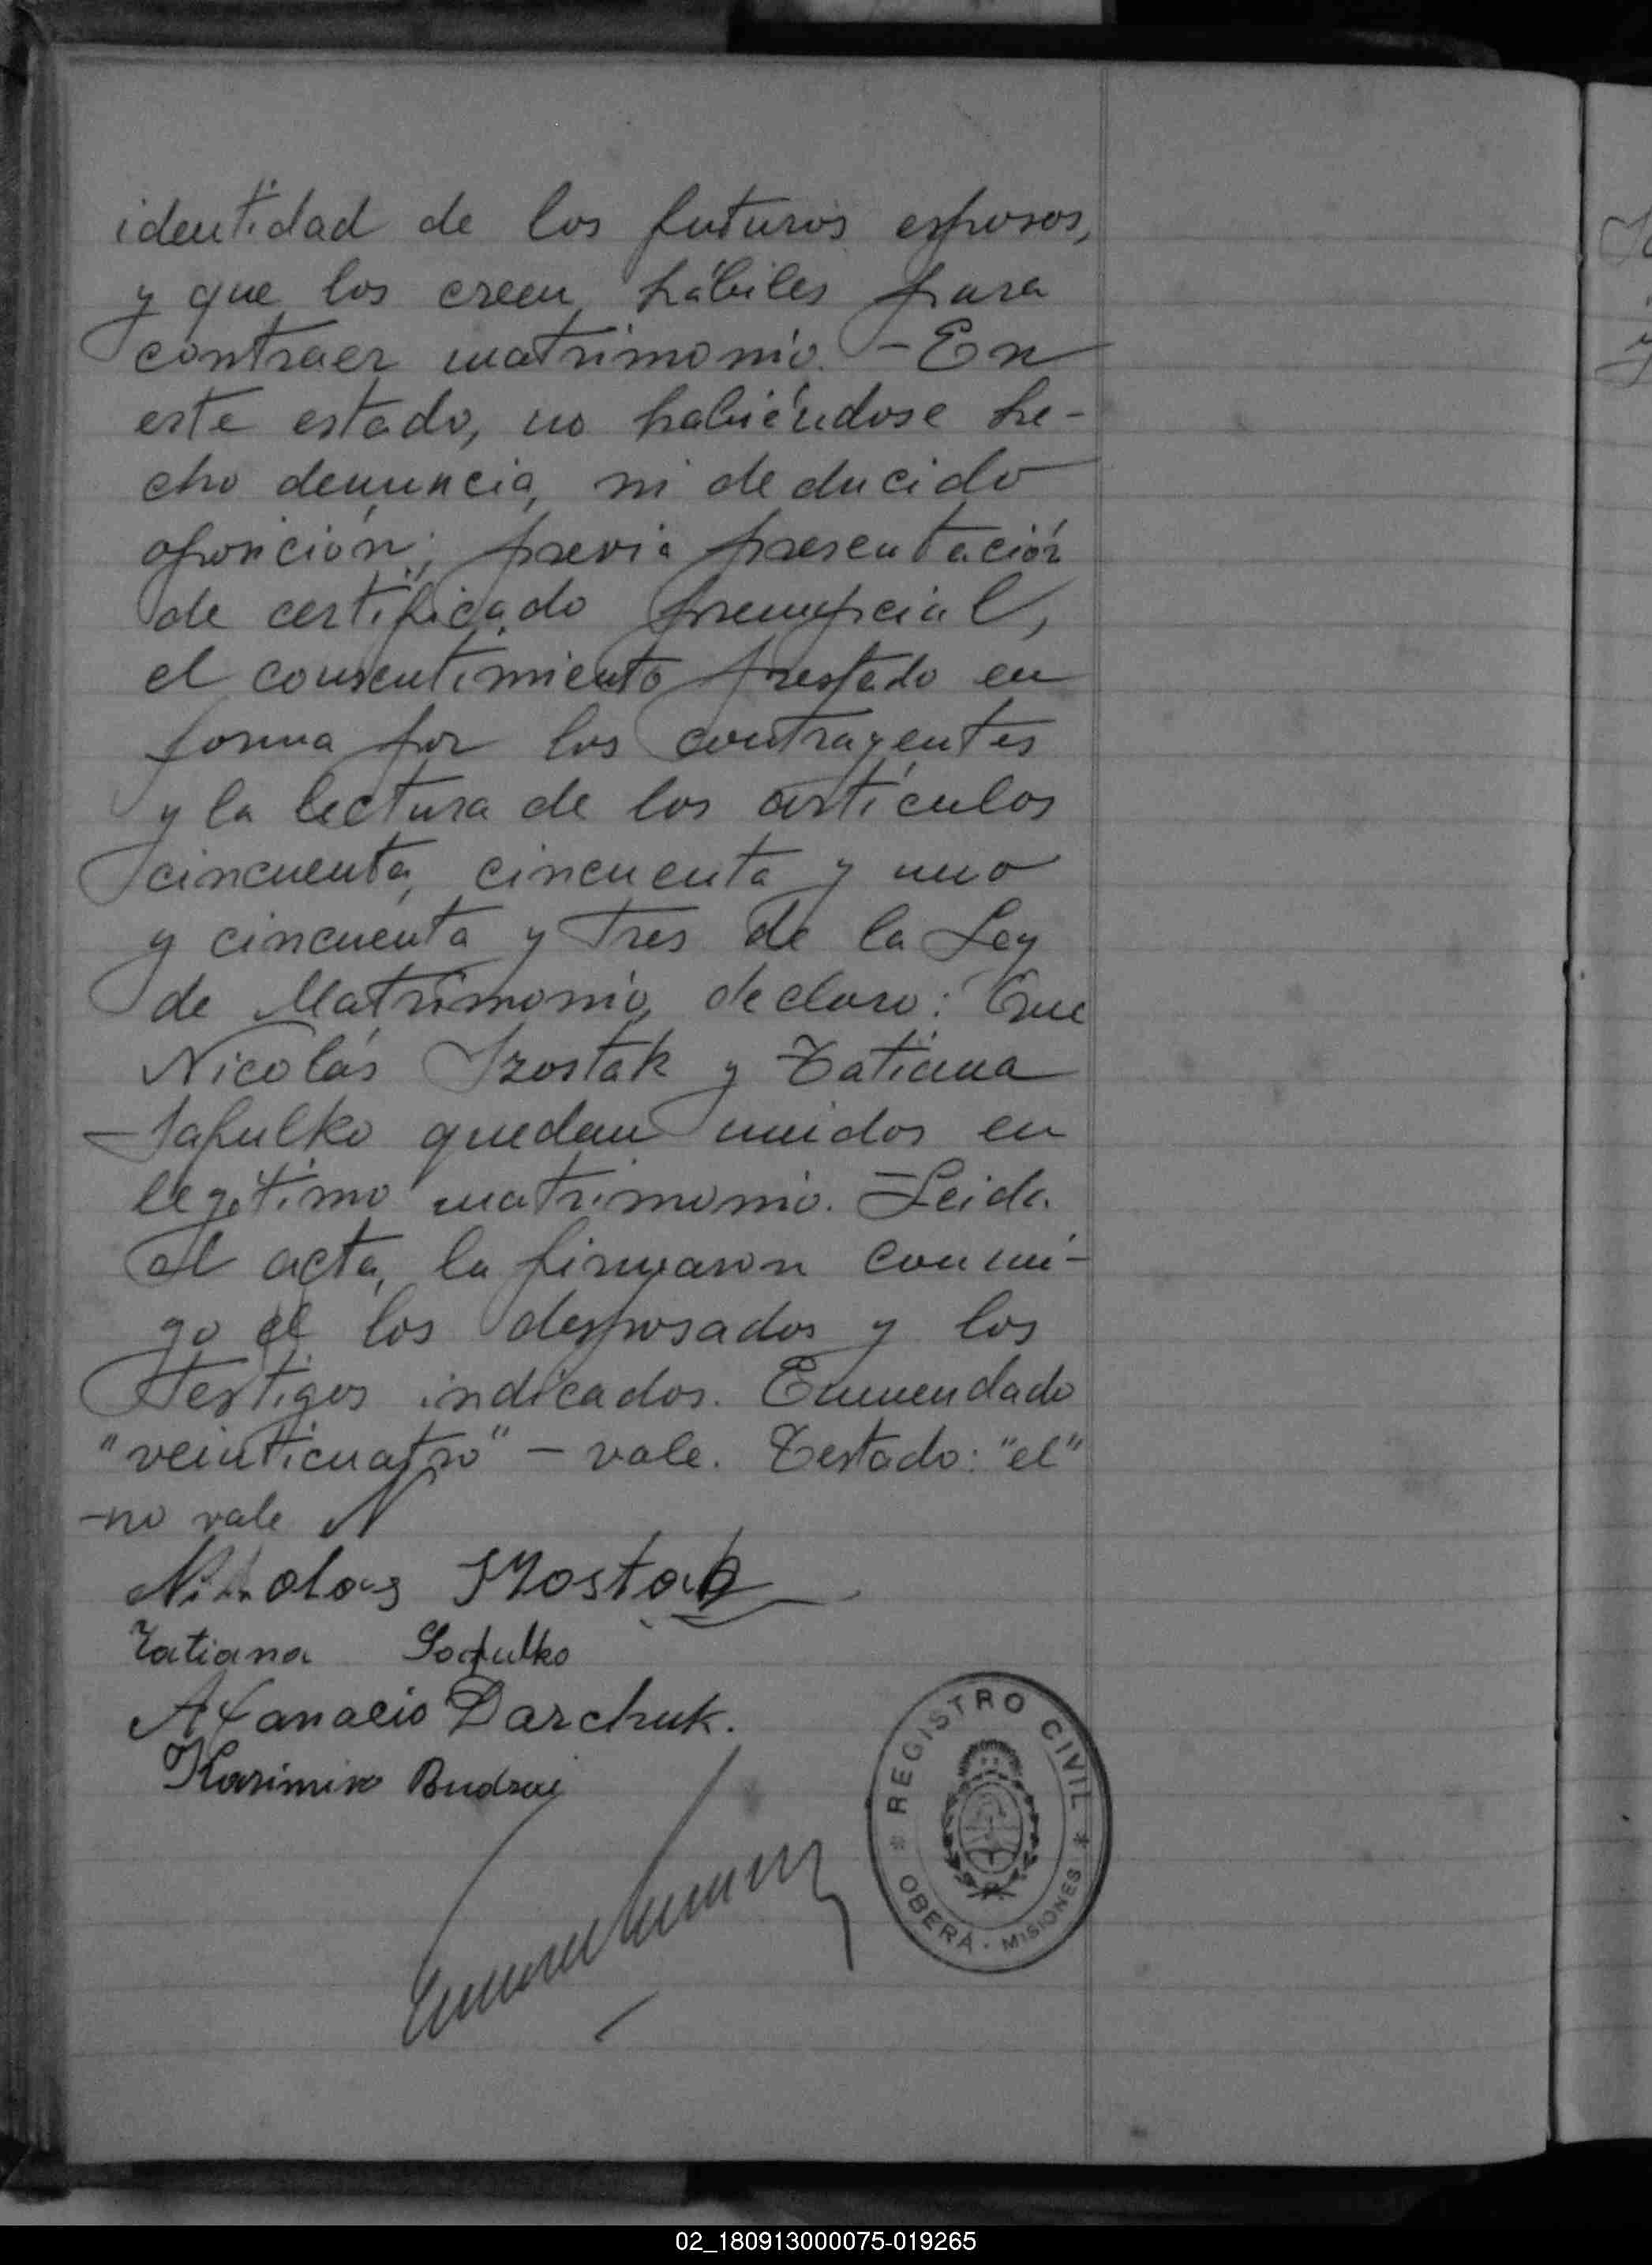 identidad de los futuros esposos,
y que los creen hábiles para
contraer matrimonio. - En
este estado, no habiéndose he-
cho denuncia, ni deducido
oposición; previa presentación
de certificado prenupcial,
el consentimiento prestado en
forma por los contrayentes
y la lectura de los artículos
cincuenta, cincuenta y uno
y cincuenta y tres de la Ley
de Matrimonio, declaro: Que
Nicolás Izostak y Tatiana
Sapulko quedan unidos en
legítimo matrimonio. Leida
el acta, la firmaron conmi-
go el los desposados y los
testigos indicados. Enmendado
"veinticuatro" - vale. Testado: "el"
-no vale
Nikolas
Tatiana Sapulko
Afanacio Darchuk.
Kasimiro
REGISTRO CIVIL
OBERÁ - MISIONES
02_180913000075-019265